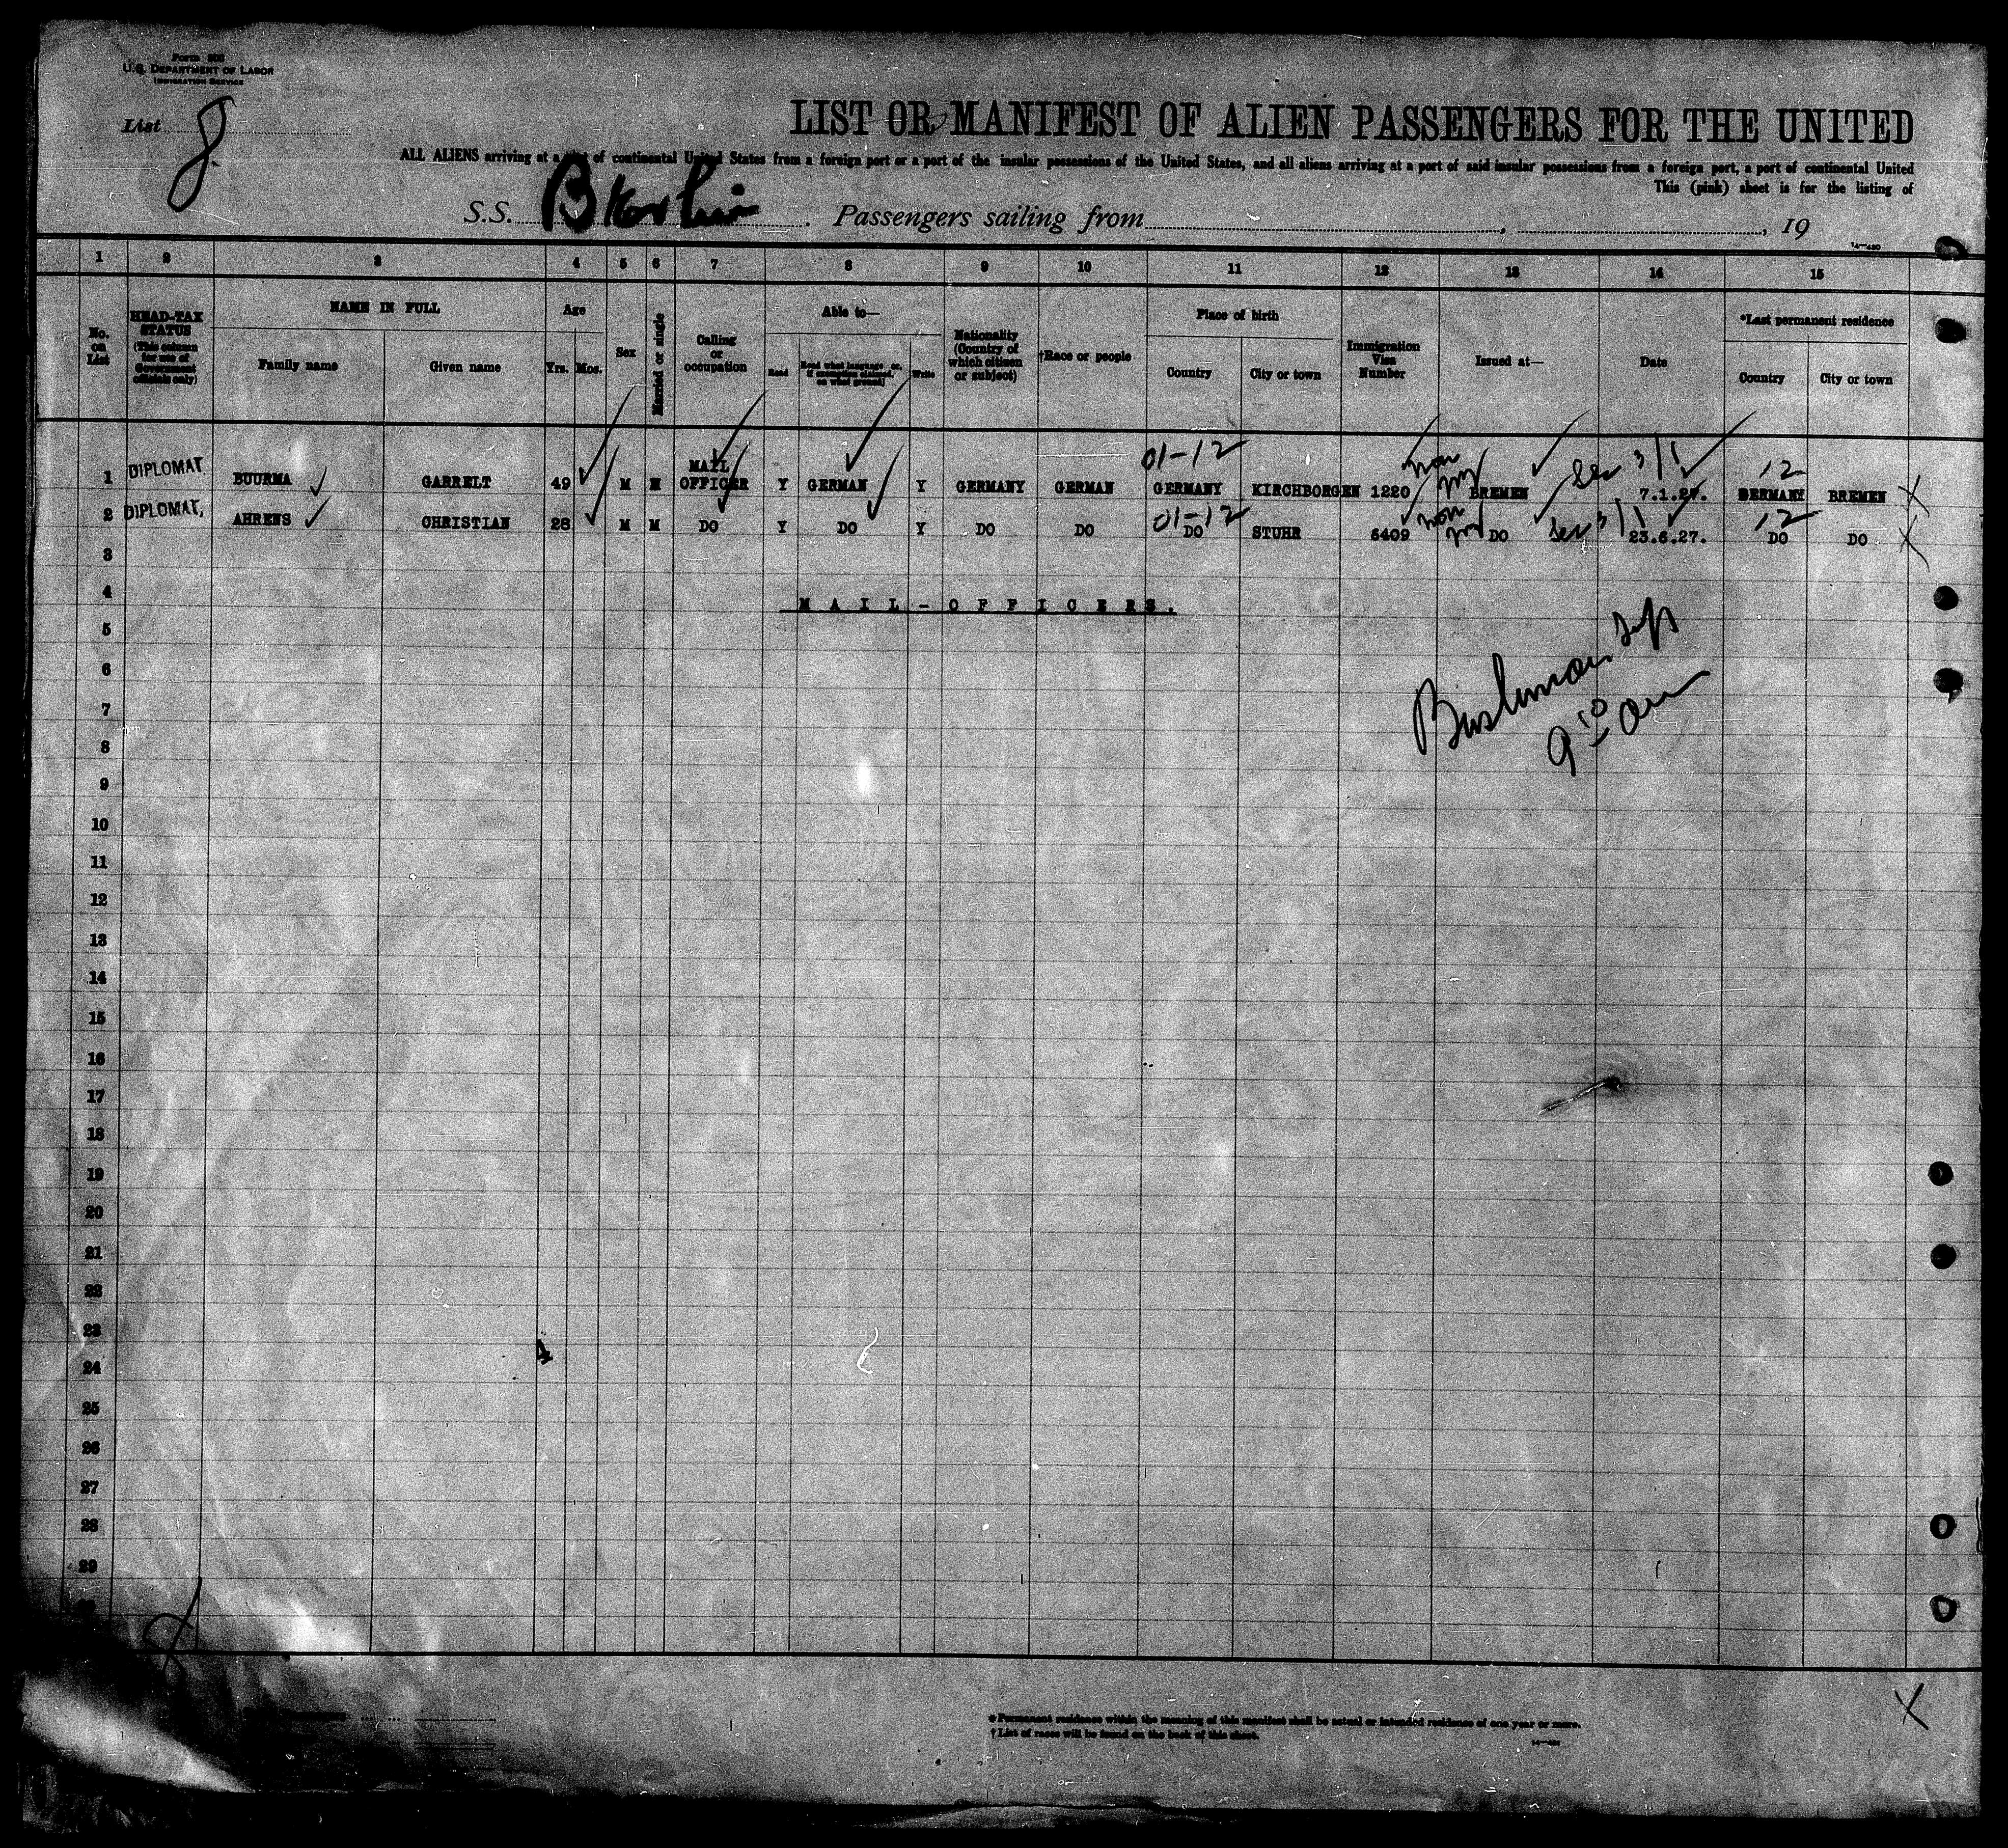 Form 500
U.S. DEPARTMENT OF LABOR
IMMIGRATION SERVICE
List 8.
LIST OR MANIFEST OF ALIEN PASSENGERS FOR THE UNITED
ALL ALIENS arriving at a port of continental United States from a foreign port or a port of the insular possessions of the United States, and all aliens arriving at a port of said insular possessions from a foreign port, a port of continental United
This (pink) sheet is for the listing of
S.S. Passengers sailing from , , 19
14—480
1 2 3 4 5 6 7 8 9 10 11 12 13 14 15
No. on List
HEAD-TAX STATUS (This column for use of Government officials only)
NAME IN FULL
Family name Given name
Age
Yrs. Mos.
Sex
Married or single
Calling or occupation
Able to—
Read
Read what language or, if exemption claimed, on what ground
Write
Nationality (Country of which citizen or subject)
†Race or people
Place of birth
Country City or town
Immigration Visa Number
Issued at—
Date
*Last permanent residence
Country City or town
01-12 non 12
1 DIPLOMAT BUURMA GARRELT 49 M M MAIL OFFICER Y GERMAN Y GERMANY GERMAN GERMANY KIRCHBORGEN 1220 BREMEN Sec 3/1 7.1.27. GERMANY BREMEN X
01-12 non 12
2 DIPLOMAT, AHRENS CHRISTIAN 28 M M DO Y DO Y DO DO DO STUHR 5409 DO Sec 3/1 23.6.27. DO DO X
3
4
MAIL-OFFICERS.
5
6
7
8
9
10
11
12
13
14
15
16
17
18
19
20
21
22
23
4
24
25
26
27
28
29
X
* Permanent residence within the meaning of this manifest shall be actual or intended residence of one year or more.
† List of races will be found on the back of this sheet.
14—480